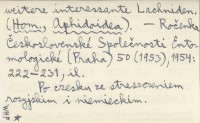 weitere interessante Lachniden.
(Hom., Aphidoidea). — Ročenka
Československé Společnosti Ento-
mologické (Praha) 50 (1953), 1954:
222—231, il.
Po czesku ze streszczeniem
rosyjskim i niemieckim.